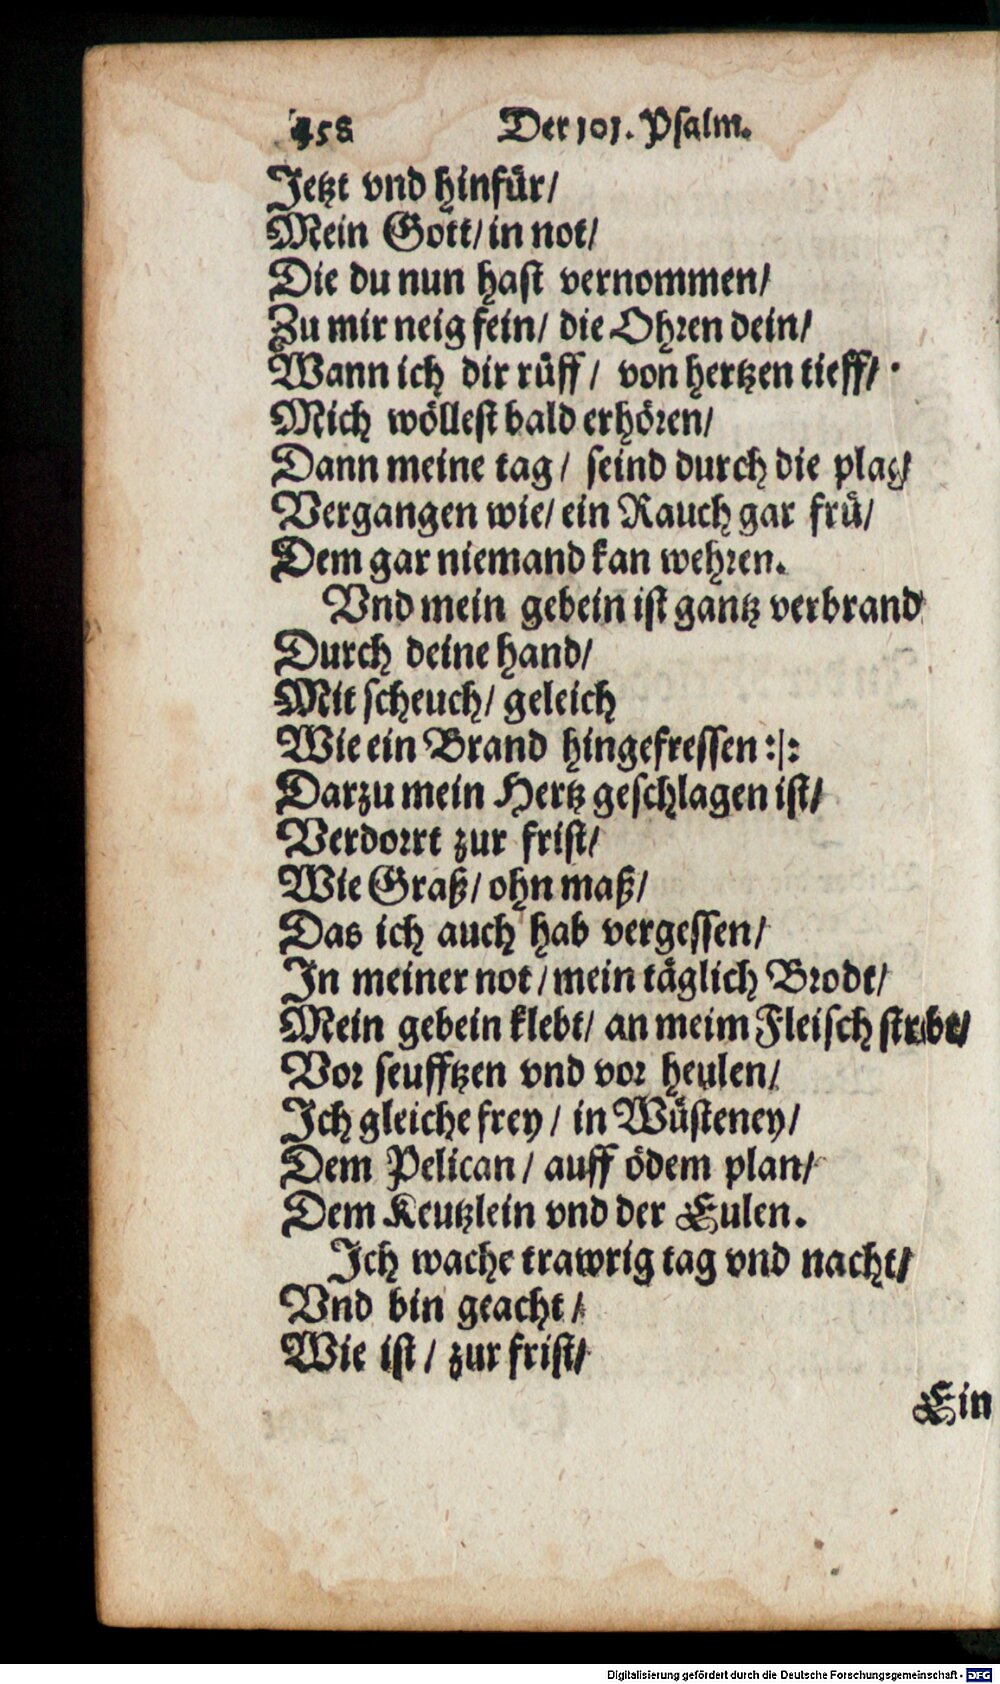 458 Der 101. Psalm.
Jetzt vnd hinfür/
Mein Gott/ in not/
Die du nun hast vernommen/
Zu mir neig fein/ die Ohren dein/
Wann ich dir rüff/ von hertzen tieff/
Mich wöllest bald erhören/
Dann meine tag/ seind durch die plag/
Vergangen wie/ ein Rauch gar frü/
Dem gar niemand kan wehren.
Vnd mein gebein ist gantz verbrand
Durch deine hand/
Mit scheuch/ geleich
Wie ein Brand hingefressen :|:
Darzu mein Hertz geschlagen ist/
Verdorrt zur frist/
Wie Graß/ ohn maß/
Das ich auch hab vergessen/
In meiner not/ mein täglich Brodt/
Mein gebein klebt/ an meim Fleisch strebt/
Vor seufftzen vnd vor heulen/
Ich gleiche frey/ in Wüsteney/
Dem Pelican/ auff ödem plan/
Dem Keutzlein vnd der Eulen.
Ich wache trawrig tag vnd nacht/
Vnd bin geacht/
Wie ist/ zur frist/
Ein
Digitalisierung gefördert durch die Deutsche Forschungsgemeinschaft - DFG